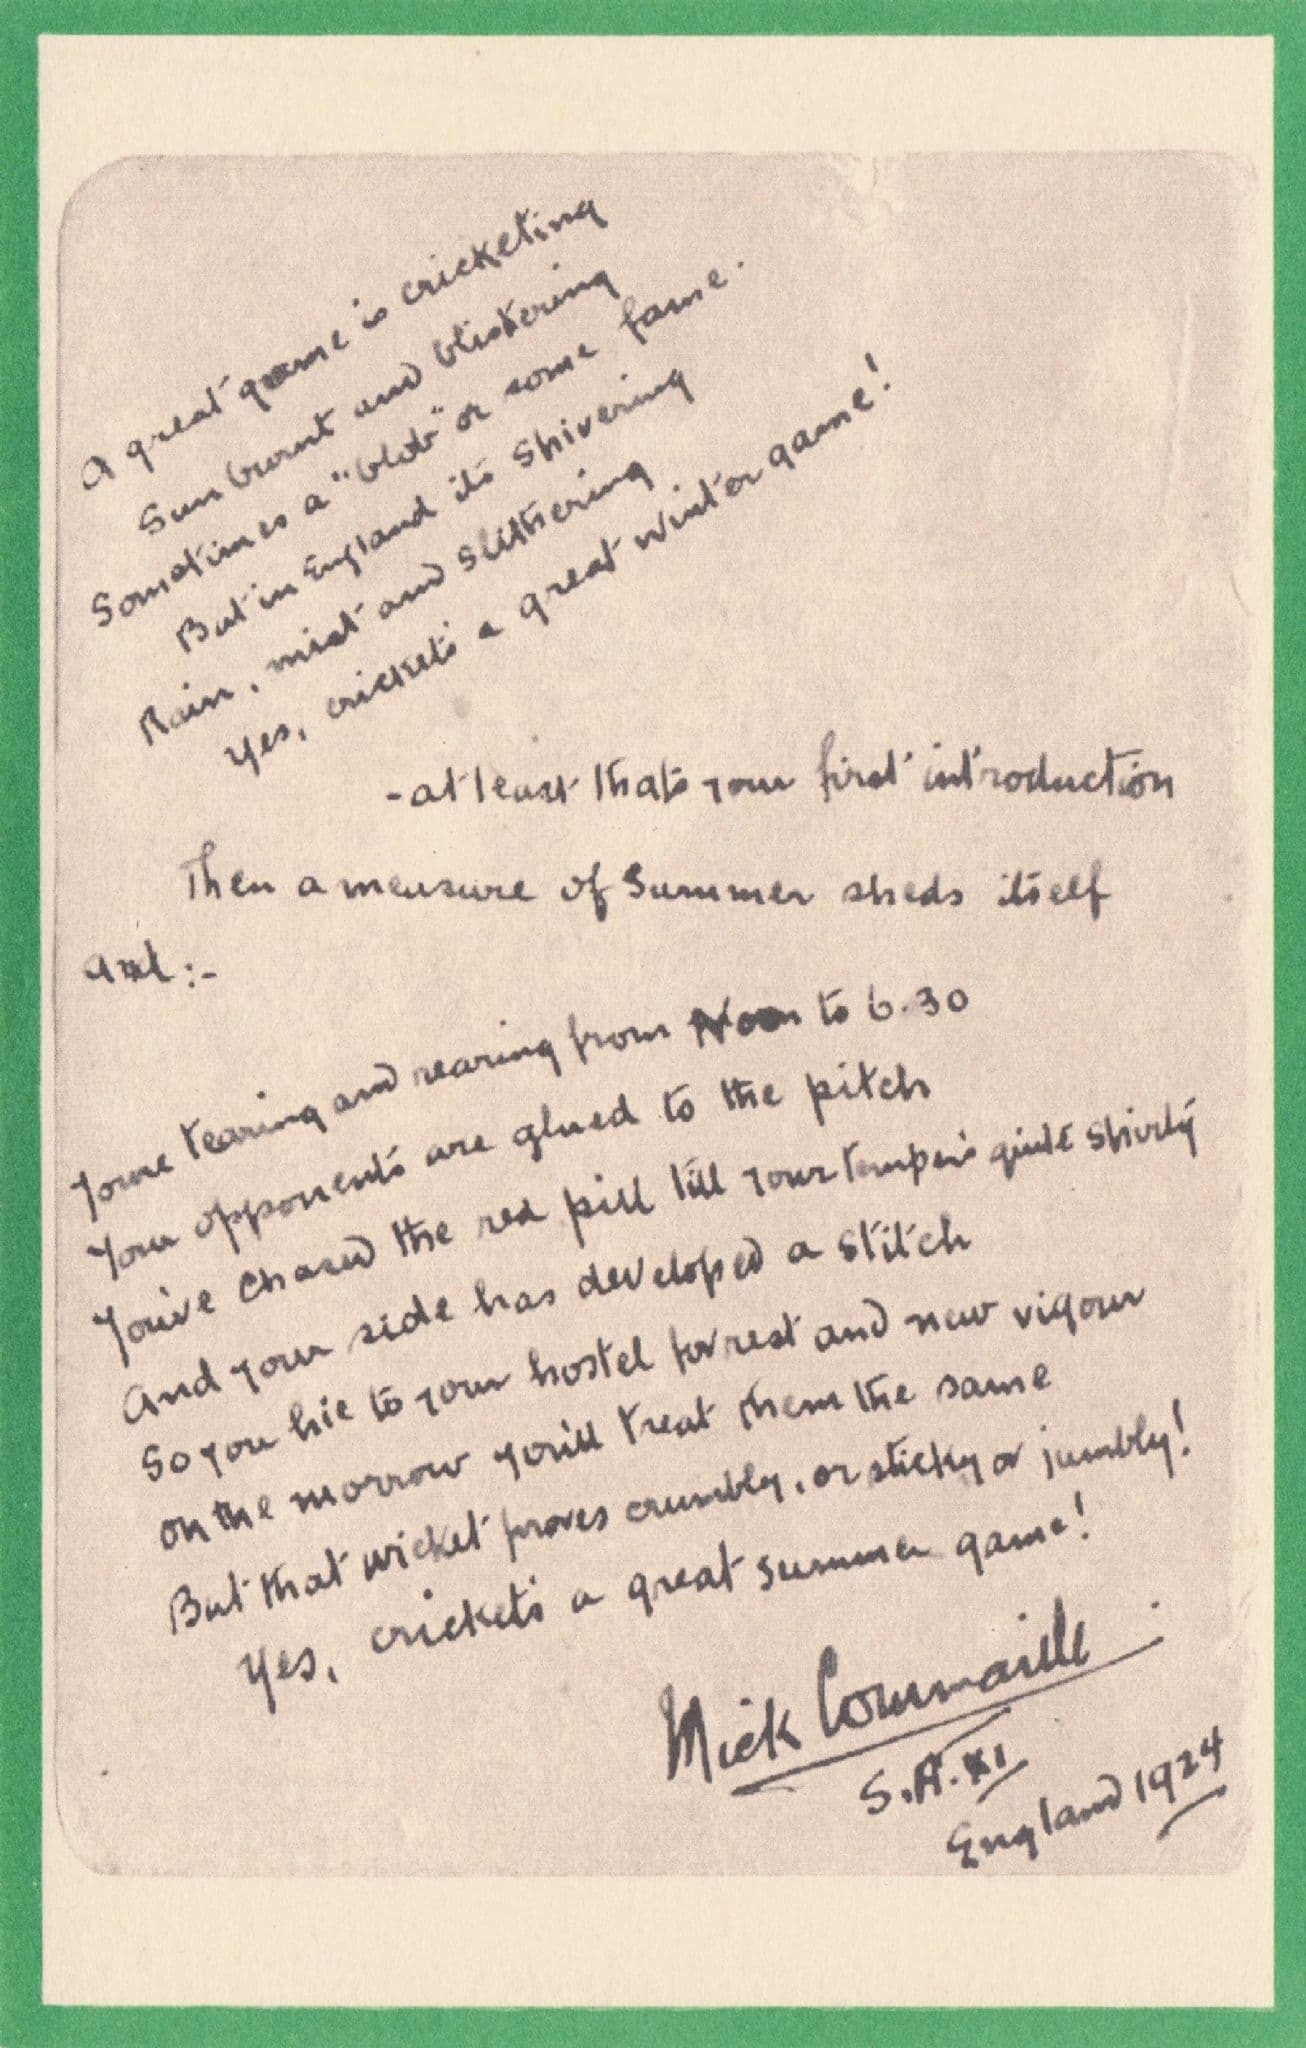 A great game is cricketing
Sun burnt and blistering
Sometimes a "blob" or some fame.
But in England its shivering
Rain, mist and slithering
Yes, crickets a great winter game!
- at least thats your first introduction
Then a measure of Summer sheds itself
and :-
Youre tearing and rearing from Noon to 6.30
Your opponents are glued to the pitch
You've chased the red pill till your temper's quite shirty
And your side has developed a stitch
So you hie to your hostel for rest and new vigour
on the morrow you'll treat them the same
But that wicket proves crumbly, or sticky or jumbly!
Yes, crickets a great summer game!
Mick Commaille
S.A. XI
England 1924